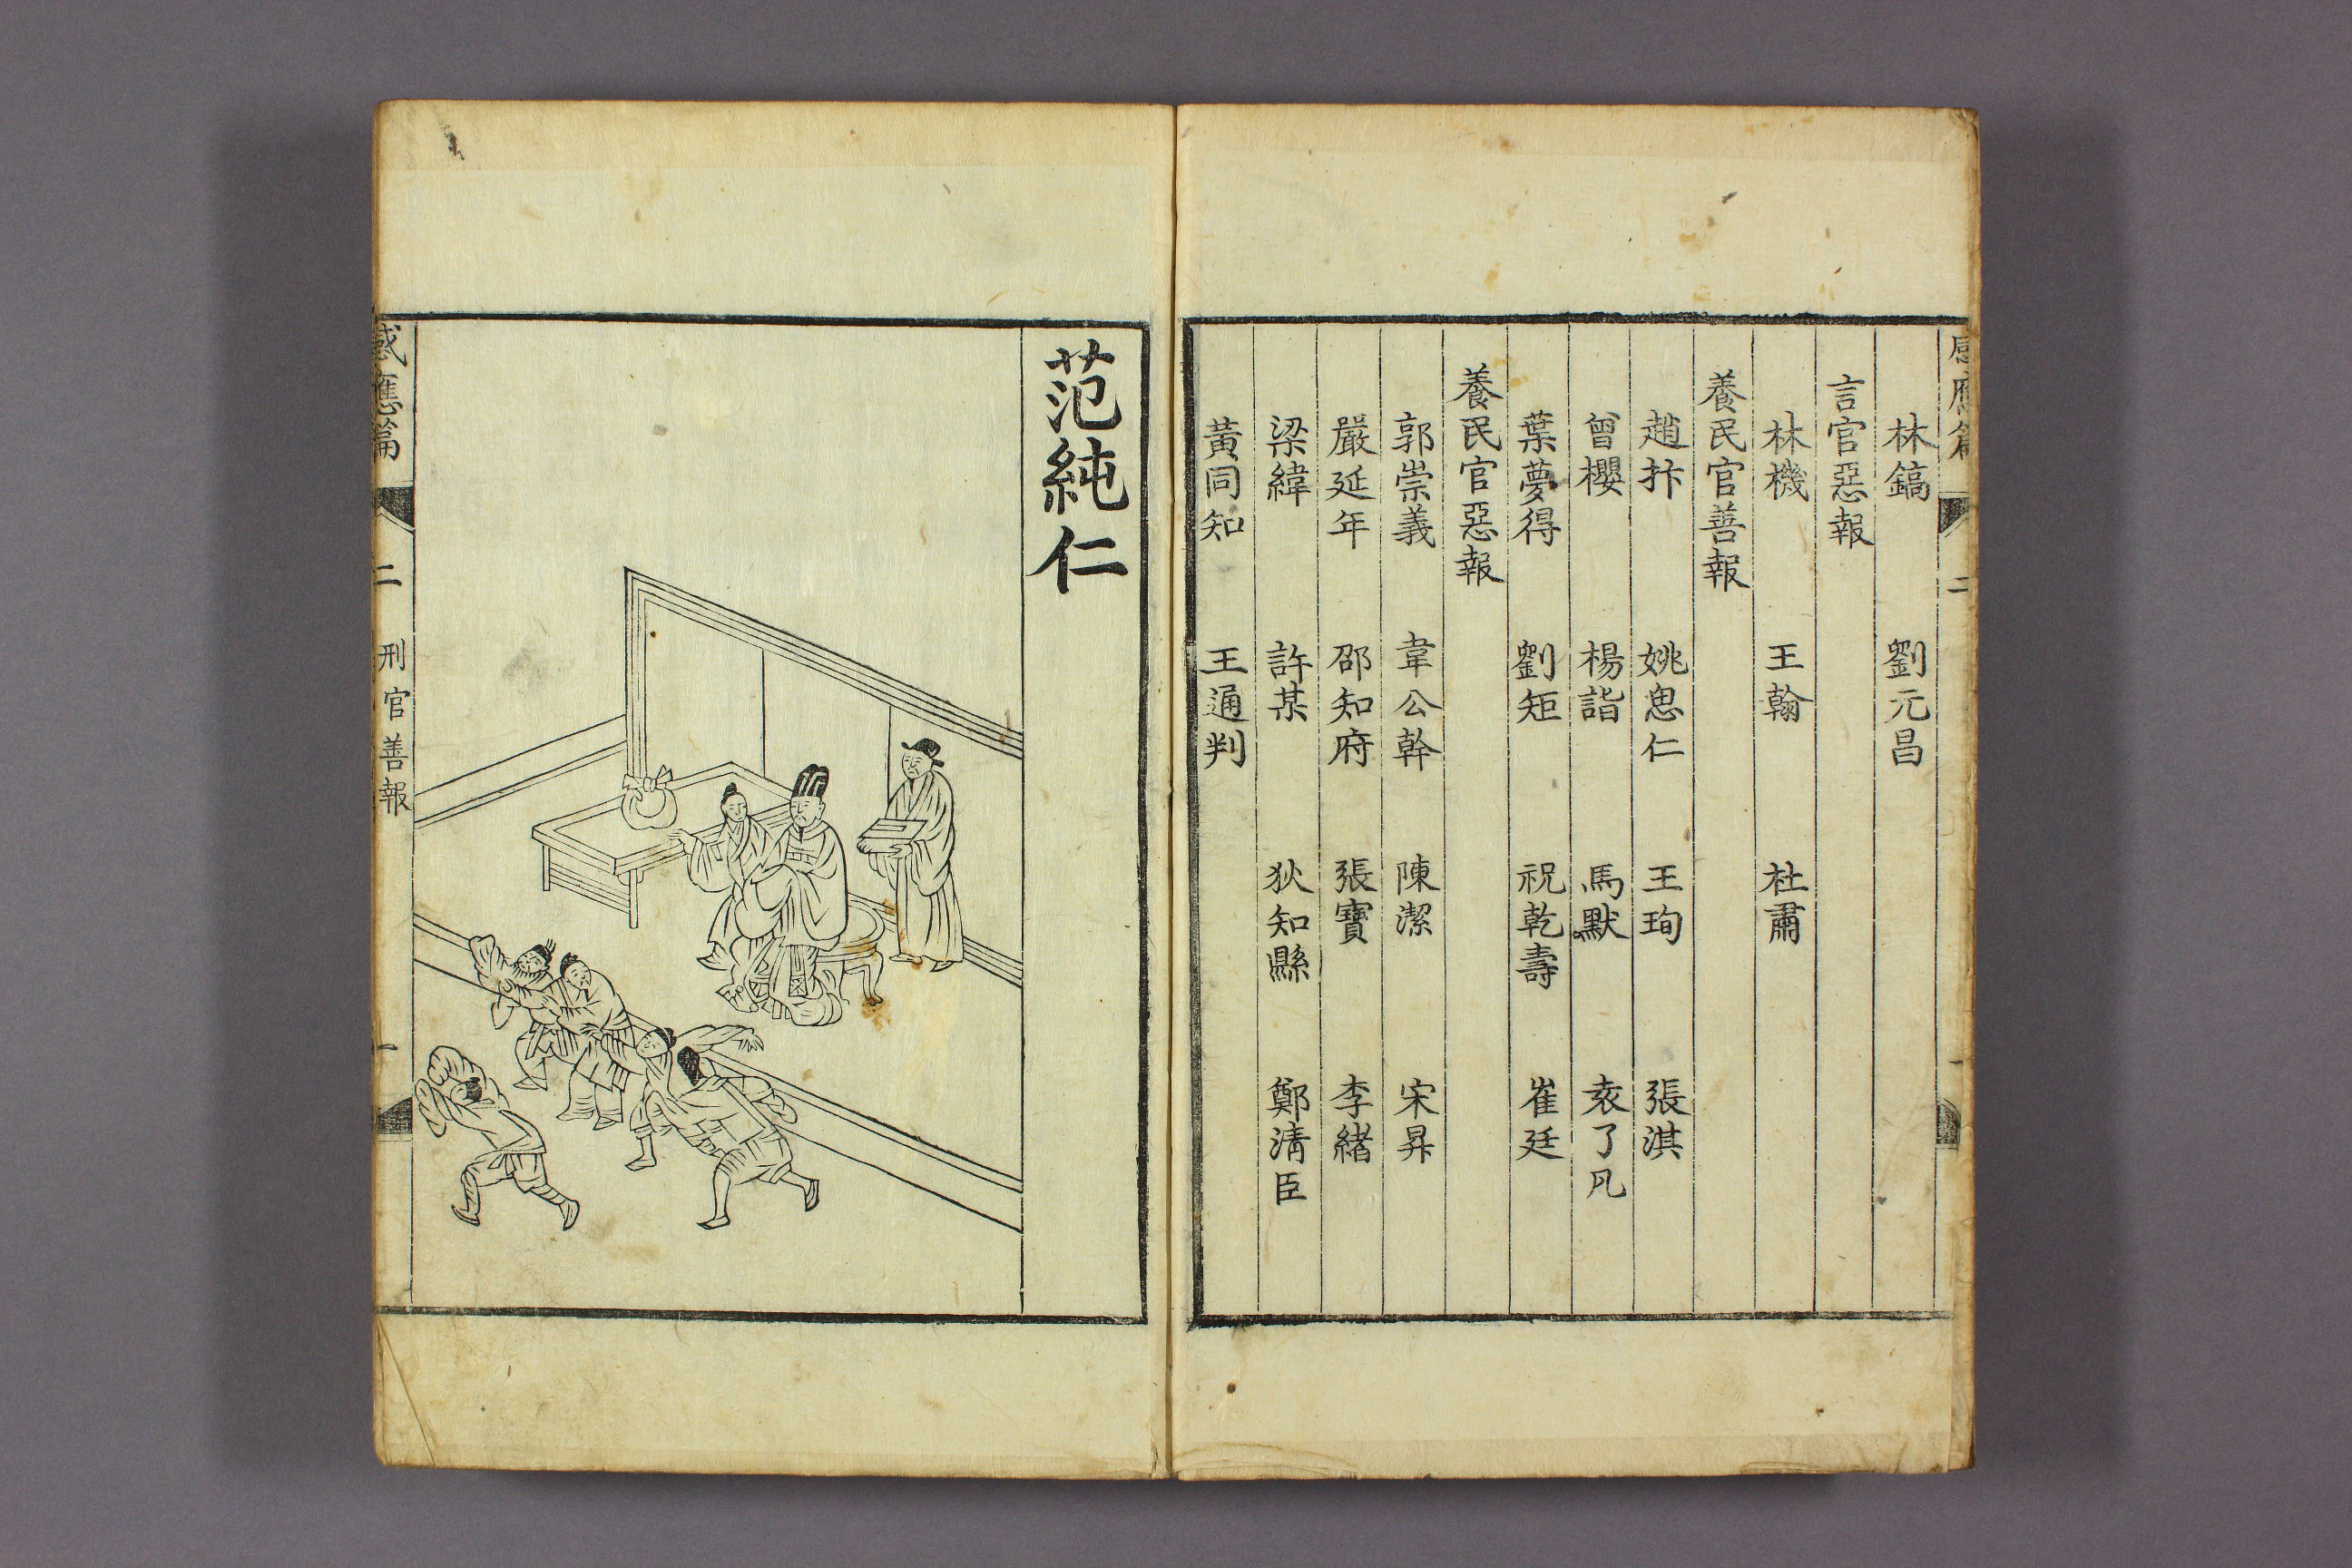 感應篇 二 一
林鎬 劉元昌
言官惡報
林機 王翰 杜肅
養民官善報
趙抃 姚思仁 王珣 張淇
曾櫻 楊詣 馬默 袁了凡
葉夢得 劉矩 祝乾壽 崔廷
養民官惡報
郭崇義 韋公幹 陳潔 宋昇
嚴延年 邵知府 張寶 李緒
梁緯 許某 狄知縣 鄭清臣
黃同知 王通判
范純仁
感應篇 二 刑官善報 一